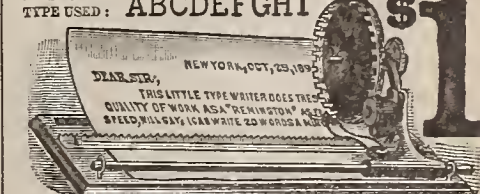 TYPE USED: ABCDEFGHI
$1
NEW YORK, OCT, 25, 189
DEAR SIR,
THIS LITTLE TYPE WRITER DOES THE S
QUALITY OF WORK AS A "REMINGTON" AS
SPEED, WILL SAY, I CAN WRITE 20 WORDS A MIN